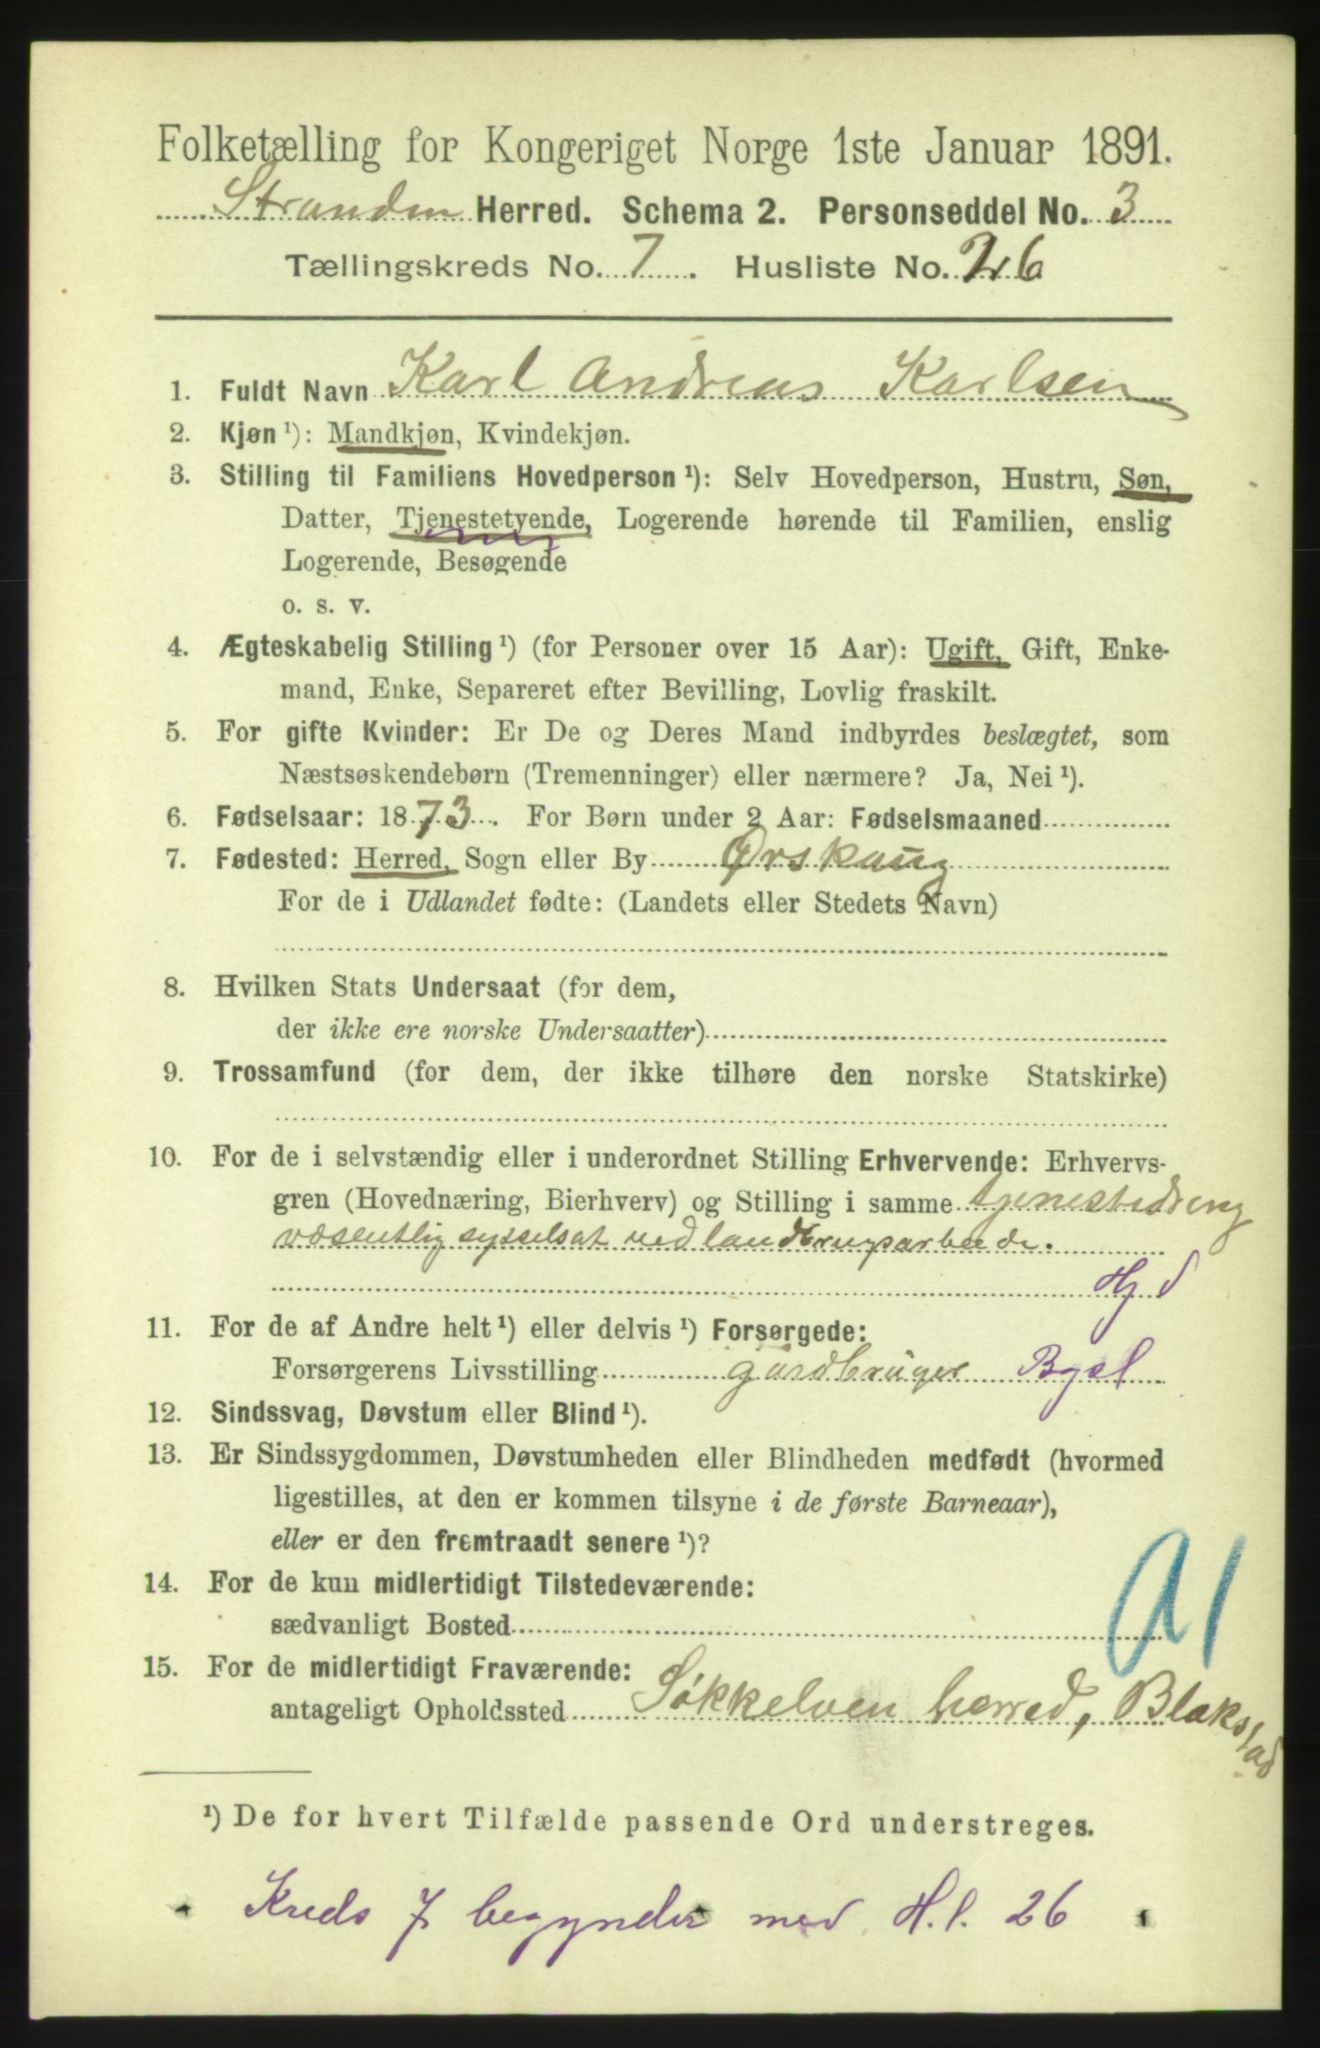 Folketælling for Kongeriget Norge 1ste Januar 1891.
Stranden Herred. Schema 2. Personseddel No. 3
Tællingskreds No. 7. Husliste No. 26
1. Fuldt Navn Karl Andreas Karlsen
2. Kjøn ¹): Mandkjøn, Kvindekjøn.
3. Stilling til Familiens Hovedperson ¹): Selv Hovedperson, Hustru, Søn,
Datter, Tjenestetyende, Logerende hørende til Familien, enslig
Logerende, Besøgende
o. s. v.
4. Ægteskabelig Stilling ¹) (for Personer over 15 Aar): Ugift, Gift, Enke-
mand, Enke, Separeret efter Bevilling, Lovlig fraskilt.
5. For gifte Kvinder: Er De og Deres Mand indbyrdes beslægtet, som
Næstsøskendebørn (Tremenninger) eller nærmere? Ja, Nei ¹).
6. Fødselsaar: 1873. For Børn under 2 Aar: Fødselsmaaned
7. Fødested: Herred, Sogn eller By Ørskaug
For de i Udlandet fødte: (Landets eller Stedets Navn)
8. Hvilken Stats Undersaat (for dem,
der ikke ere norske Undersaatter)
9. Trossamfund (for dem, der ikke tilhøre den norske Statskirke)
10. For de i selvstændig eller i underordnet Stilling Erhvervende: Erhvervs-
gren (Hovednæring, Bierhverv) og Stilling i samme tjenestedreng
væsentlig sysselsat ved landbrugsarbeide.
Hj d
11. For de af Andre helt ¹) eller delvis ¹) Forsørgede:
Forsørgerens Livsstilling gardbruger Bgsl
12. Sindssvag, Døvstum eller Blind ¹).
13. Er Sindssygdommen, Døvstumheden eller Blindheden medfødt (hvormed
ligestilles, at den er kommen tilsyne i de første Barneaar),
eller er den fremtraadt senere ¹)?
14. For de kun midlertidigt Tilstedeværende:
sædvanligt Bosted
15. For de midlertidigt Fraværende:
antageligt Opholdssted Søkkelven herred, Blakstad
¹) De for hvert Tilfælde passende Ord understreges.
Kreds 7 begynder med H.l. 26